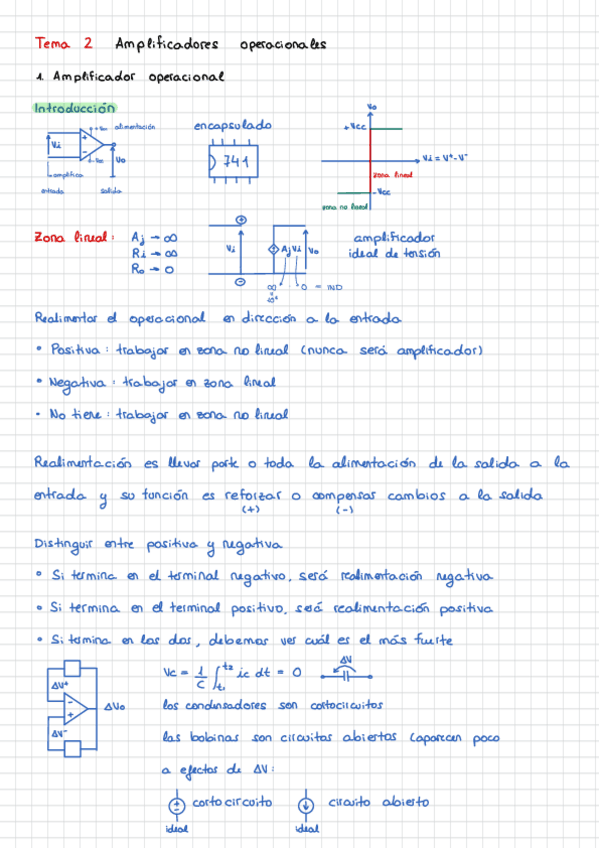 Tema 2 Amplificadores operacionales
1. Amplificador operacional
Introducción
alimentación
Vi
Vo
amplifica
entrada salida
encapsulado
741
Vo
+Vcc
Vi = V⁺-V⁻
zona lineal
-Vcc
zona no lineal
Zona lineal: Aj → ∞
Ri → ∞
Ro → 0
Vi
Aj Vi
Vo
∞ · 0 = IND
amplificador
ideal de tensión
Realimentar el operacional en dirección a la entrada
• Positiva: trabajar en zona no lineal (nunca será amplificador)
• Negativa: trabajar en zona lineal
• No tiene: trabajar en zona no lineal
Realimentación es llevar parte o toda la alimentación de la salida a la
entrada y su función es reforzar o compensas cambios a la salida
(+) (-)
Distinguir entre positiva y negativa
• Si termina en el terminal negativo, será realimentación negativa
• Si termina en el terminal positivo, será realimentación positiva
• Si termina en las dos, debemos ver cuál es el más fuerte
ΔV⁺
ΔVo
ΔV⁻
Vc = 1/C ∫ t₁ t₂ ic dt = 0
ΔV
los condensadores son cortocircuitos
las bobinas son circuitos abiertos (aparecen poco
a efectos de ΔV:
cortocircuito
ideal
circuito abierto
ideal